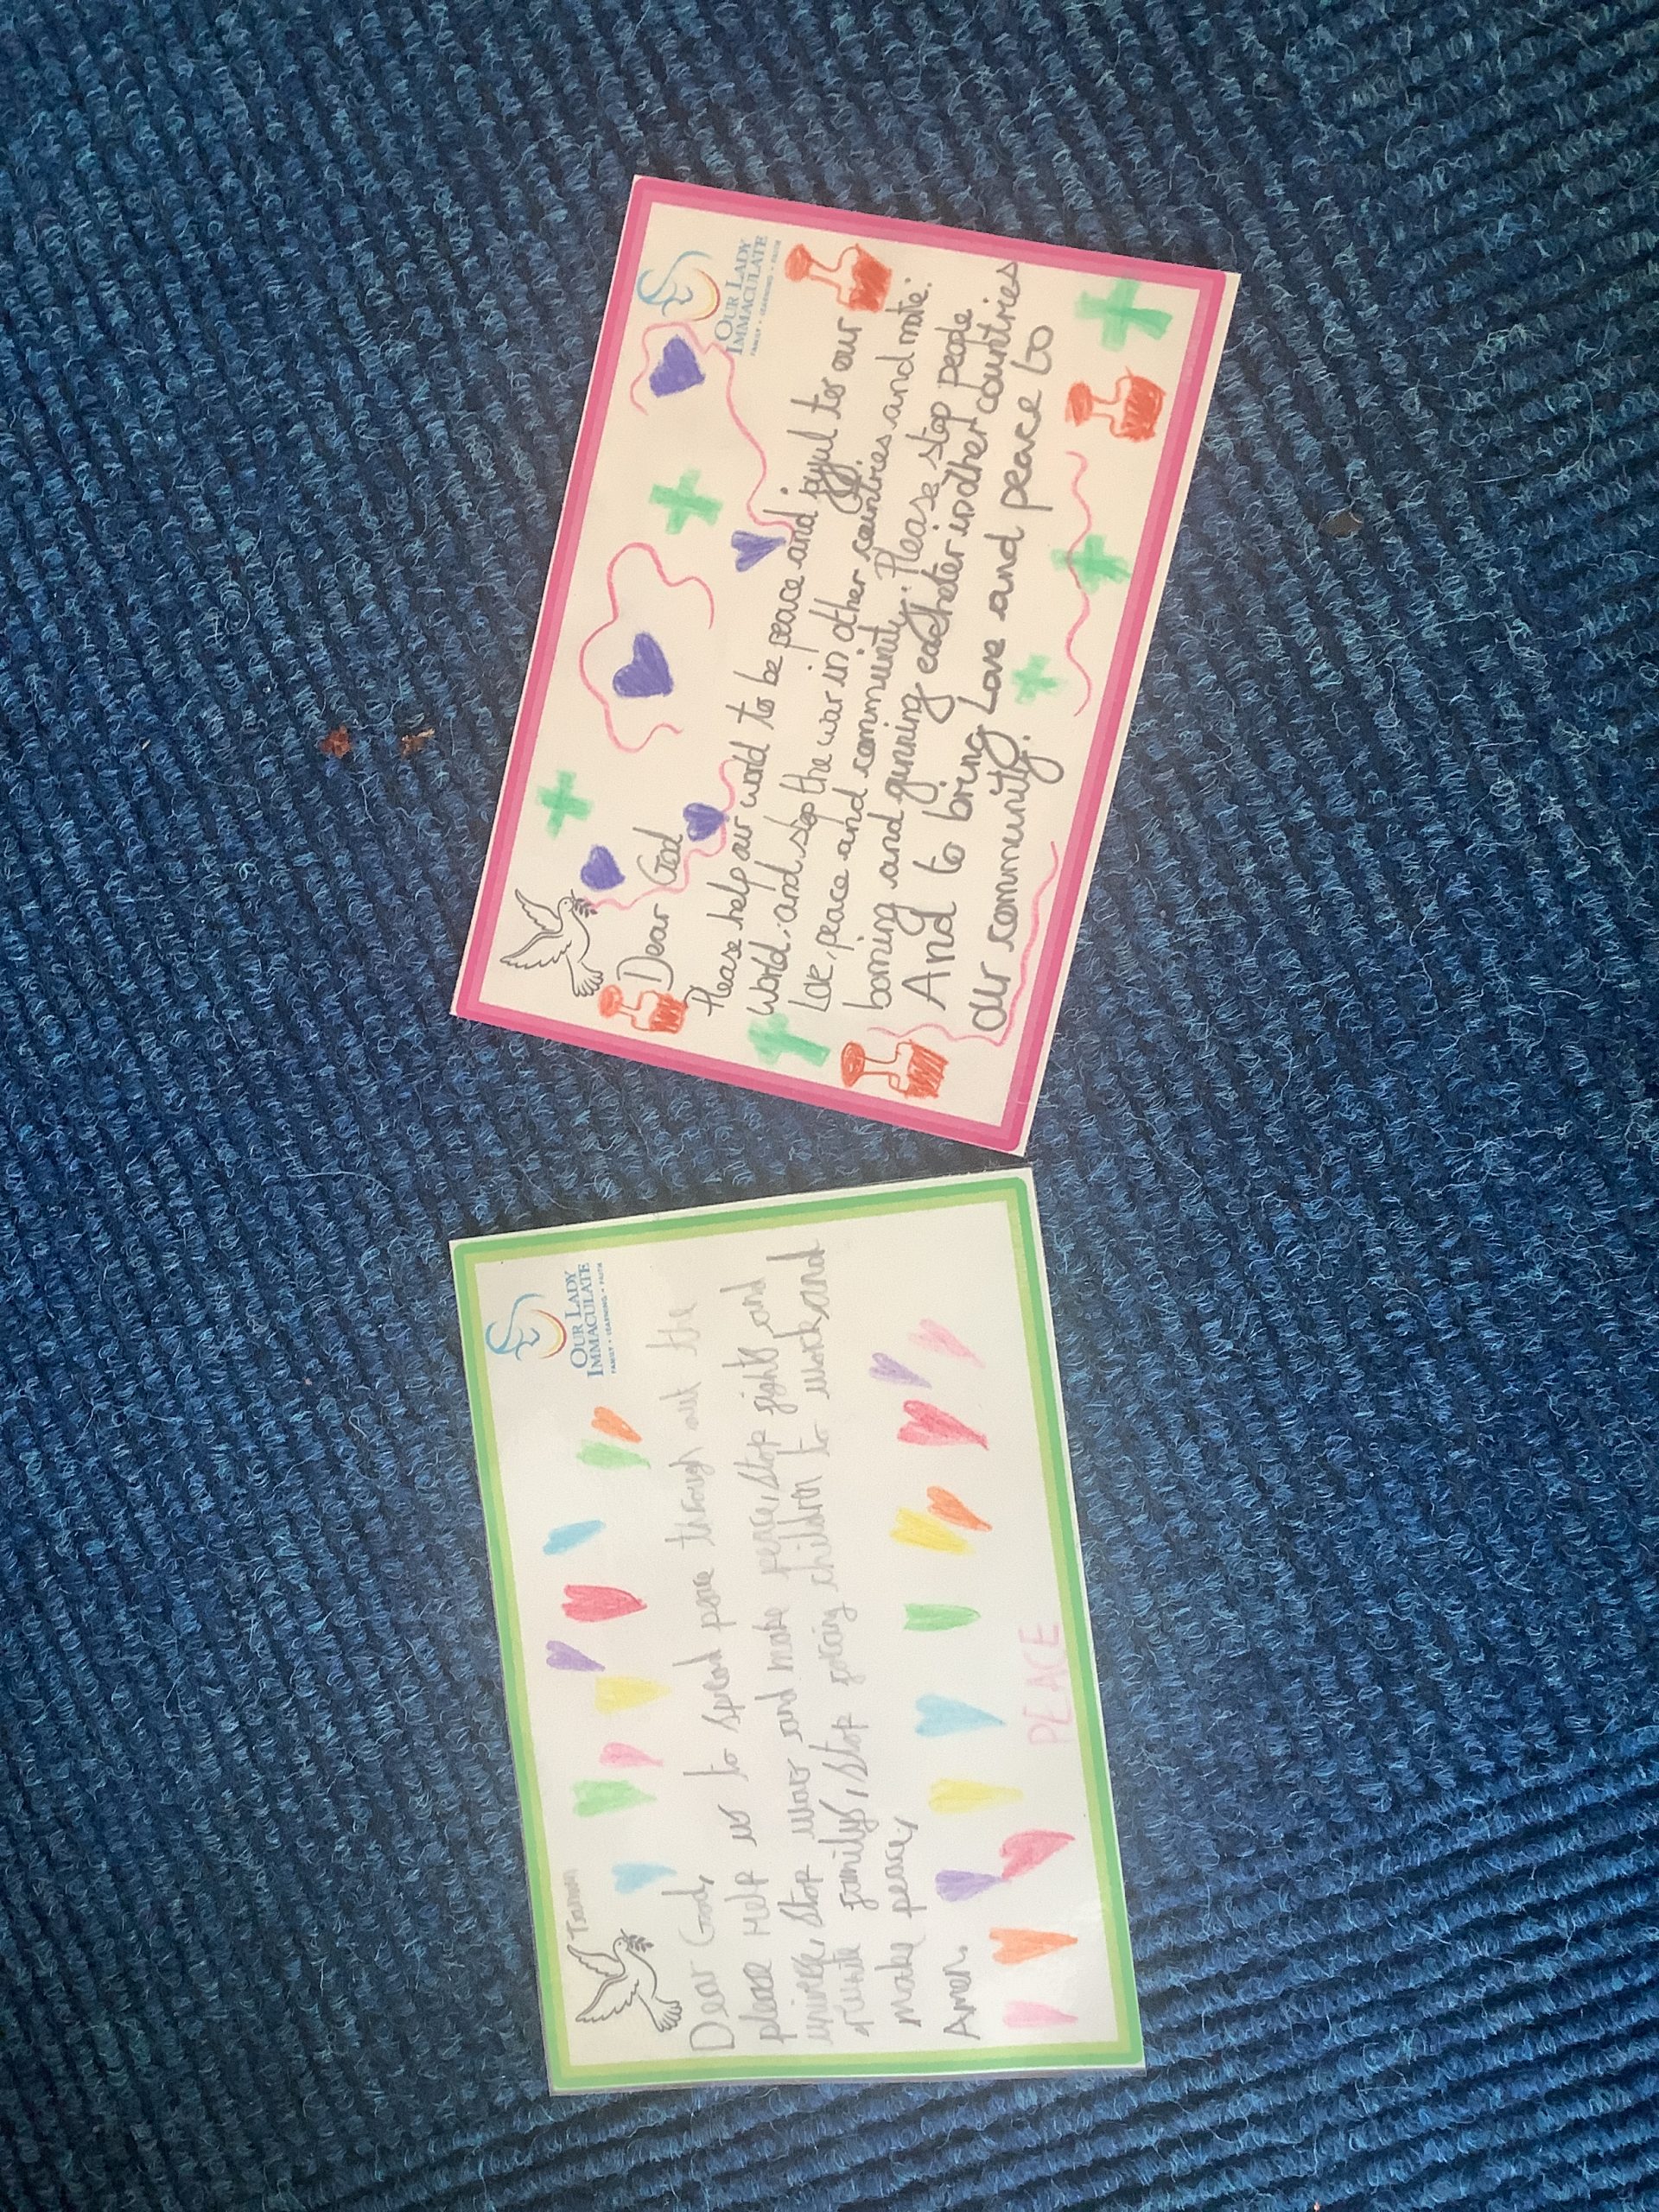 OUR LADY
IMMACULATE
FAMILY • LEARNING • FAITH
Dear God
Please help our world to be peace and joyful to our
world. and stop the war in other countries.
Love, peace and community countries and
boming and gunning. Please stop people
And to bring eachother in other countries
our community. Love and peace to
OUR LADY
IMMACULATE
FAMILY • LEARNING • FAITH
Dear God,
please Help us to spread peace through out the
stop wars and make peace, stop fights and
family's, stop forcing children to work, and
make peace,
Amen
PEACE